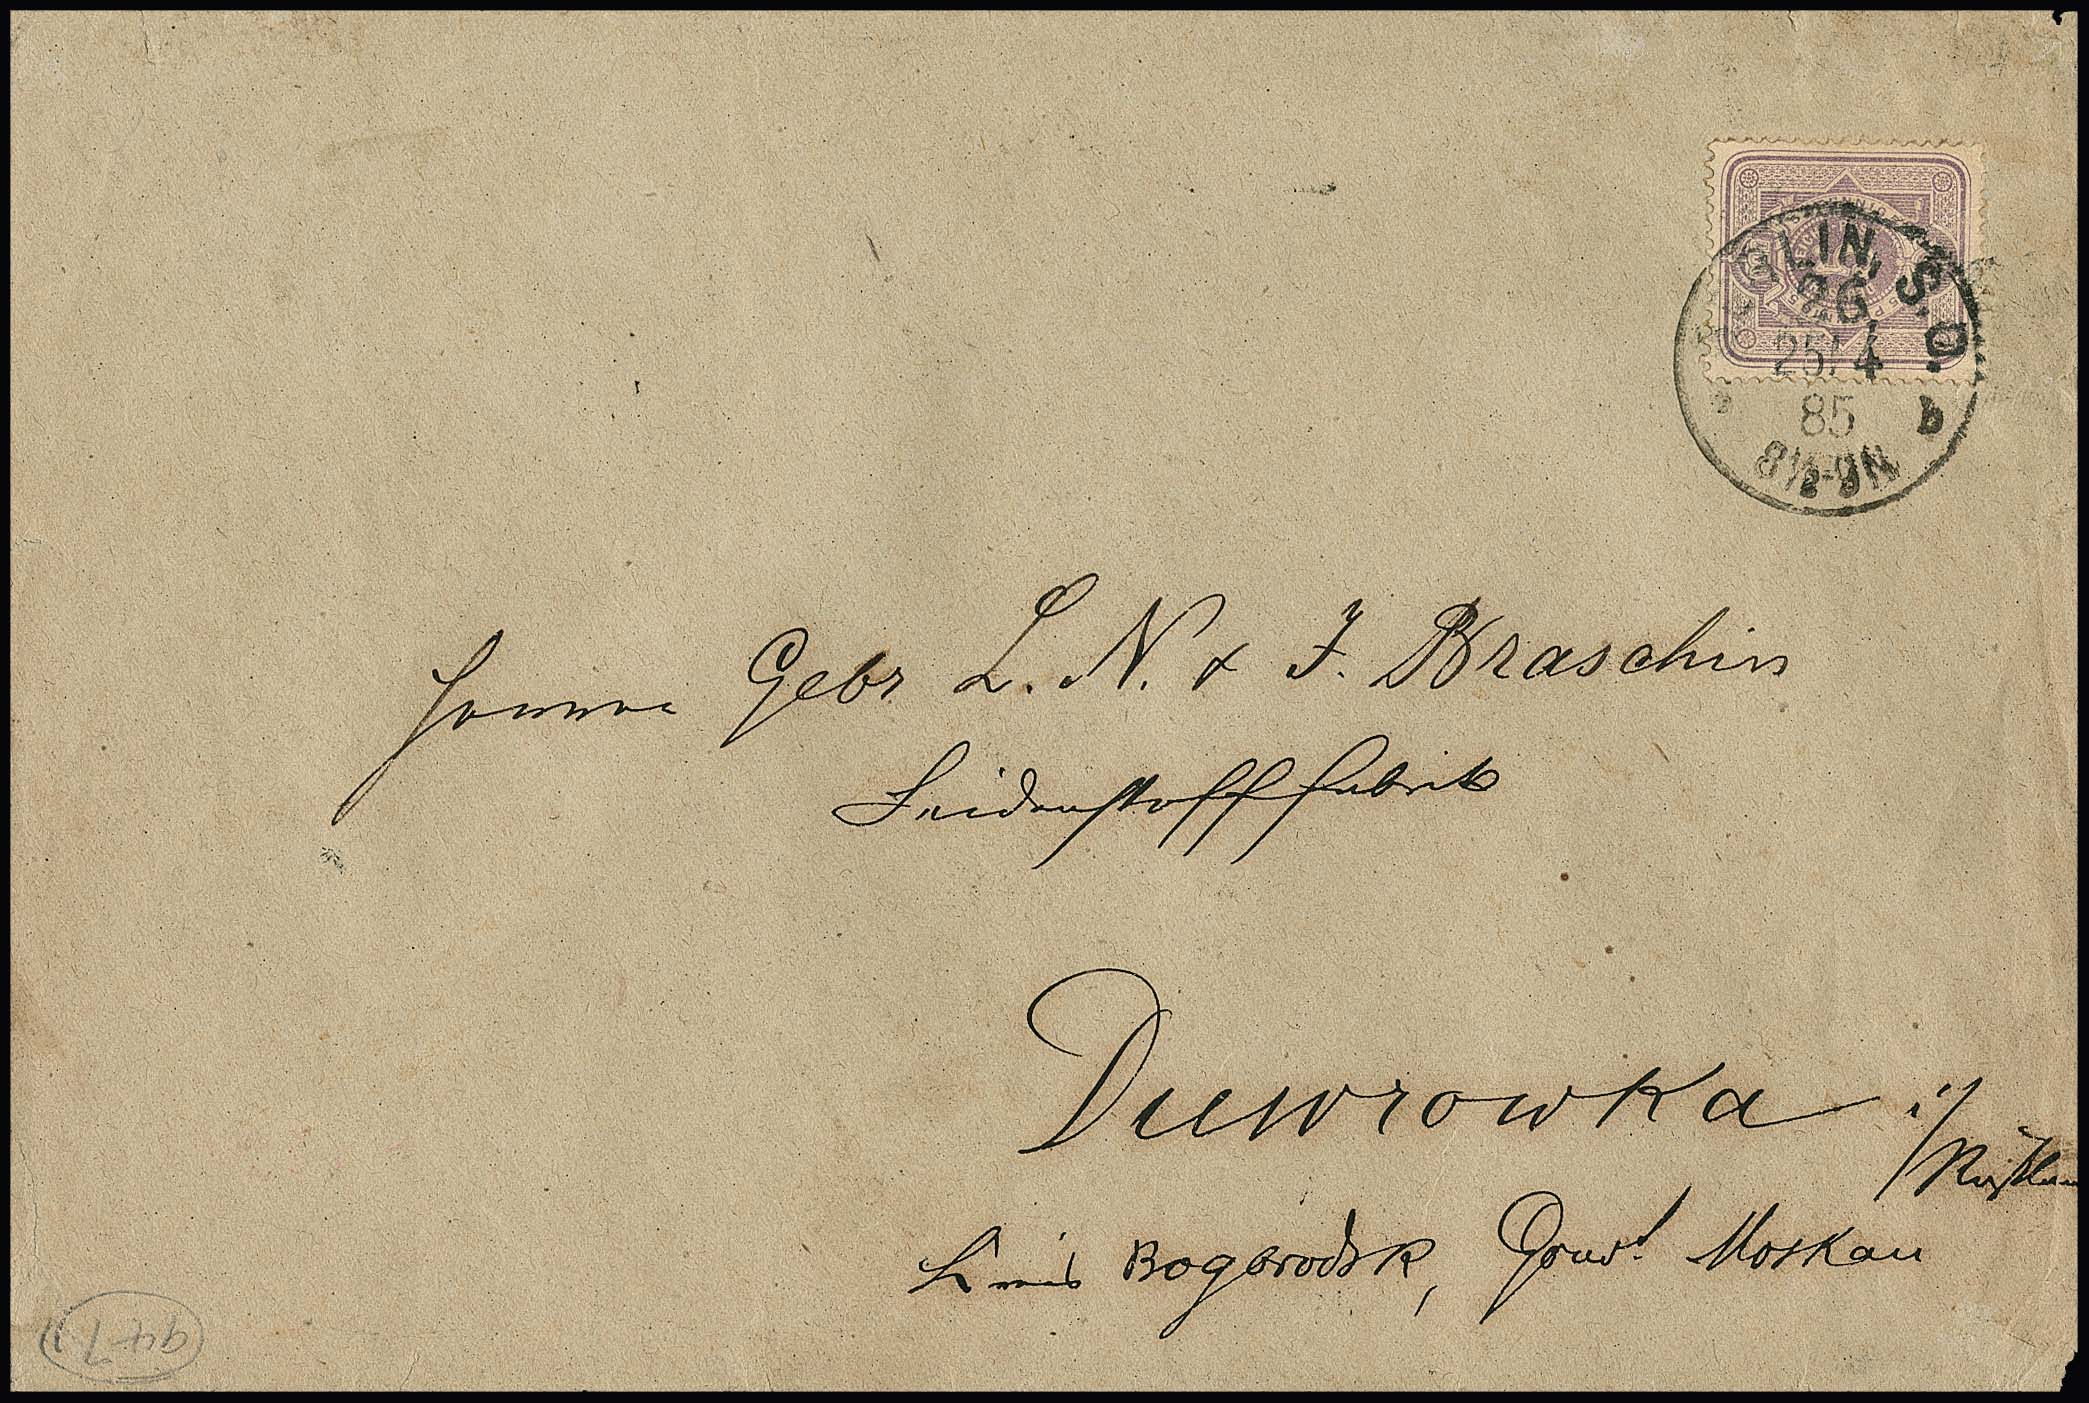 BERLIN, S.O.
26.
25/4
85
8½-9N.
b
Firma Gebr L. N. & J. Braschin
Seidenstofffabrik
Duwrowka i/
Kreis Bogorodsk, Gouvt Moskau